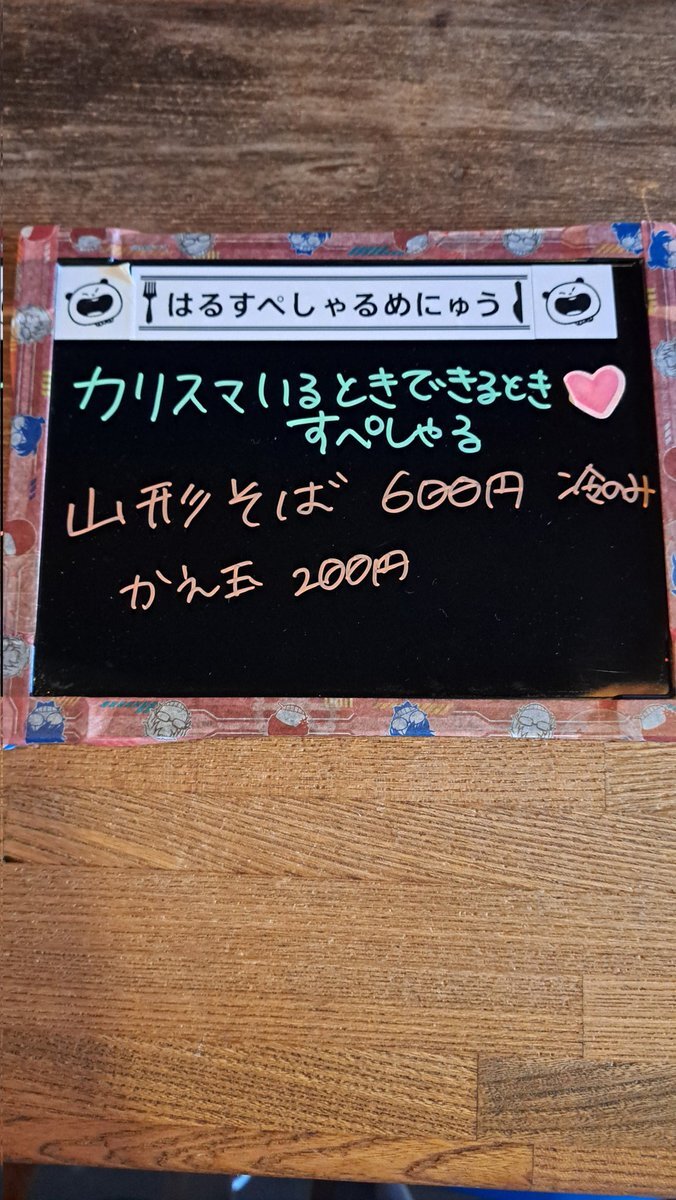 はるすぺしゃるめにゅう
カリスマいるときできるとき
すぺしゃる
山形そば 600円 冷のみ
かえ玉 200円